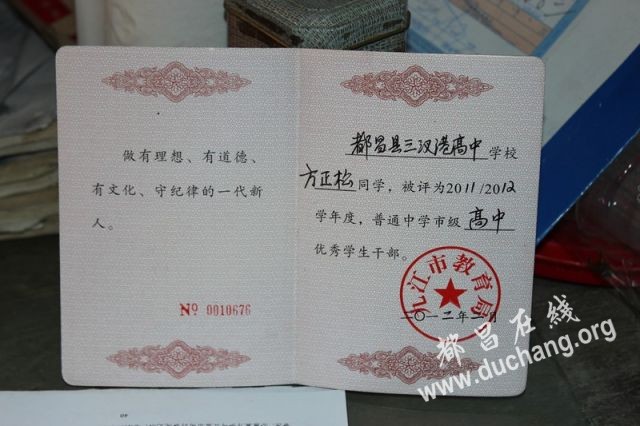 做有理想、有道德、
有文化、守纪律的一代新
人。
Nº 0010676
都昌县三汊港高中学校
方正松同学，被评为2011/2012
学年度，普通中学市级高中
优秀学生干部。
九江市教育局
二〇一二年二月
都昌在线
www.duchang.org